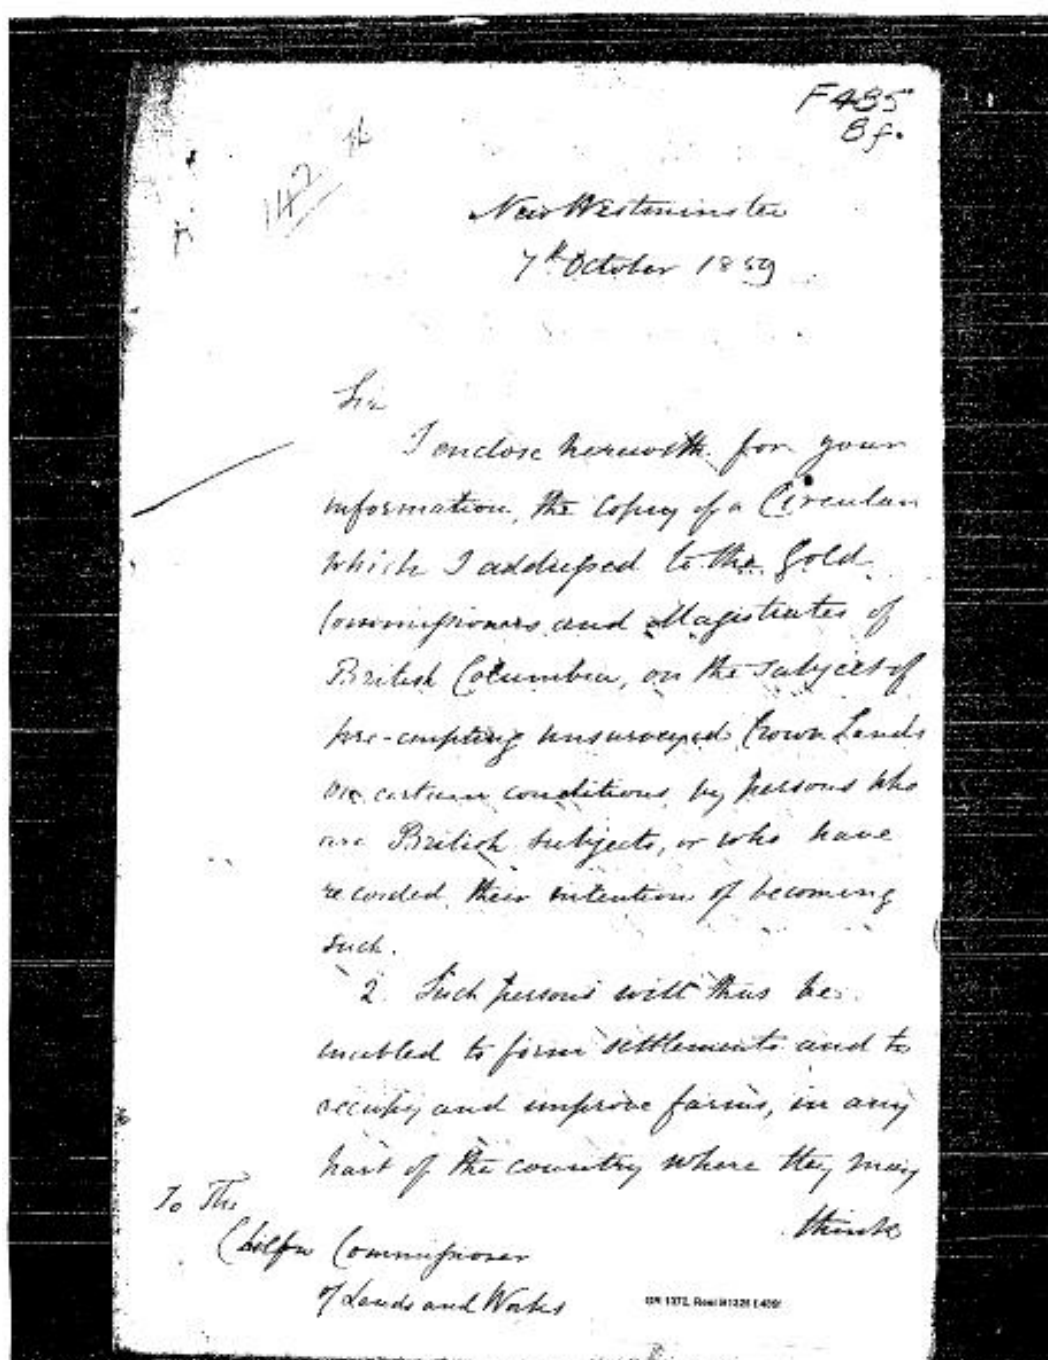 F485
8f.
142
New Westminster
7th October 1859
Sir
I enclose herewith for your
information, the Copy of a Circular
which I addressed to the Gold
Commissioners and Magistrates of
British Columbia, on the subject of
pre-empting unsurveyed Crown Lands
on certain conditions by persons who
are British subjects, or who have
recorded their intention of becoming
such.
2. Such persons will thus be
enabled to form settlements and to
occupy and improve farms, in any
part of the country where they may
think
To The
Commissioner
of Lands and Works
GR 1372, Reel B1325